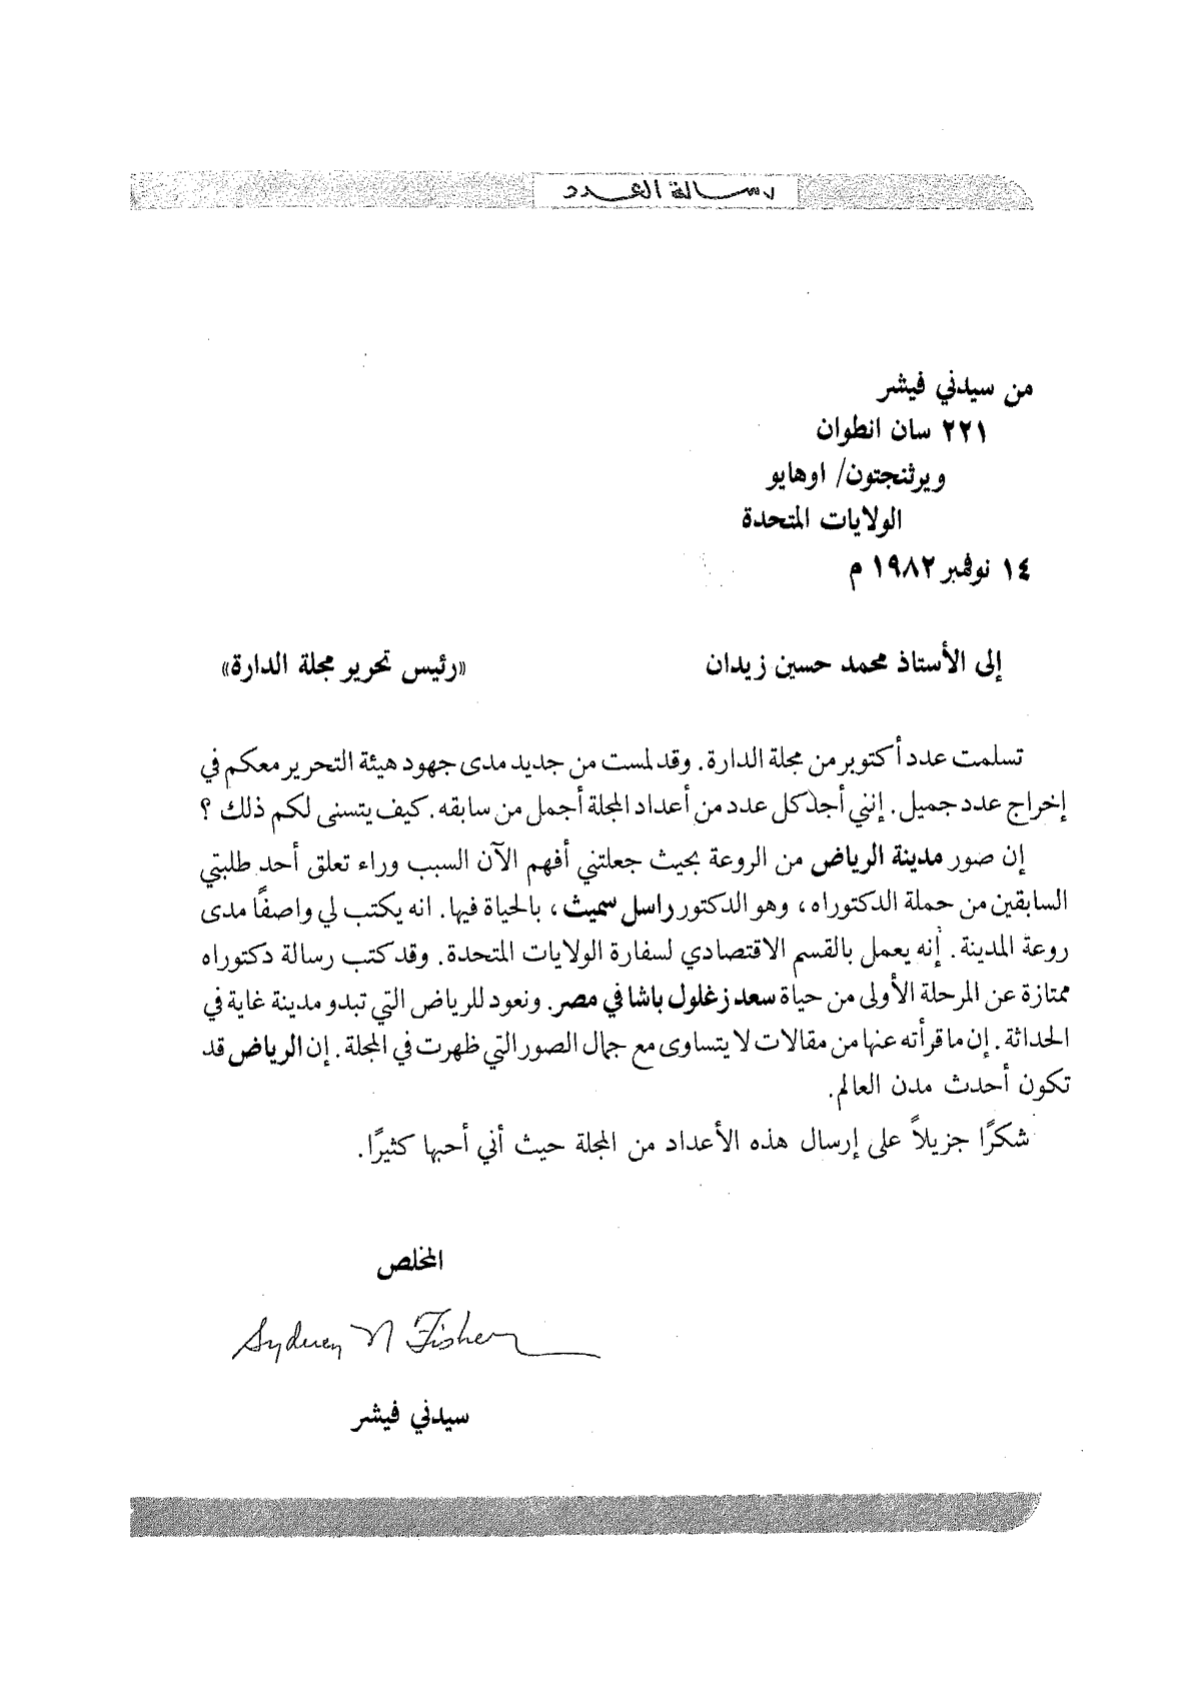 رسالة العدد
من سيدني فيشر
٢٢١ سان انطوان
ويرثنجتون/ اوهايو
الولايات المتحدة
١٤ نوفمبر ١٩٨٢ م
إلى الأستاذ محمد حسين زيدان «رئيس تحرير مجلة الدارة»
تسلمت عدد أكتوبر من مجلة الدارة. وقد لمست من جديد مدى جهود هيئة التحرير معكم في
إخراج عدد جميل. إنني أجد كل عدد من أعداد المجلة أجمل من سابقه. كيف يتسنى لكم ذلك ؟
إن صور مدينة الرياض من الروعة بحيث جعلتني أفهم الآن السبب وراء تعلق أحد طلبتي
السابقين من حملة الدكتوراه، وهو الدكتور راسل سميث، بالحياة فيها. انه يكتب لي واصفًا مدى
روعة المدينة. إنه يعمل بالقسم الاقتصادي لسفارة الولايات المتحدة. وقد كتب رسالة دكتوراه
ممتازة عن المرحلة الأولى من حياة سعد زغلول باشا في مصر. ونعود للرياض التي تبدو مدينة غاية في
الحداثة. إن ما قرأته عنها من مقالات لا يتساوى مع جمال الصور التي ظهرت في المجلة. إن الرياض قد
تكون أحدث مدن العالم.
شكرًا جزيلاً على إرسال هذه الأعداد من المجلة حيث أني أحبها كثيرًا.
المخلص
Sydney N Fisher
سيدني فيشر